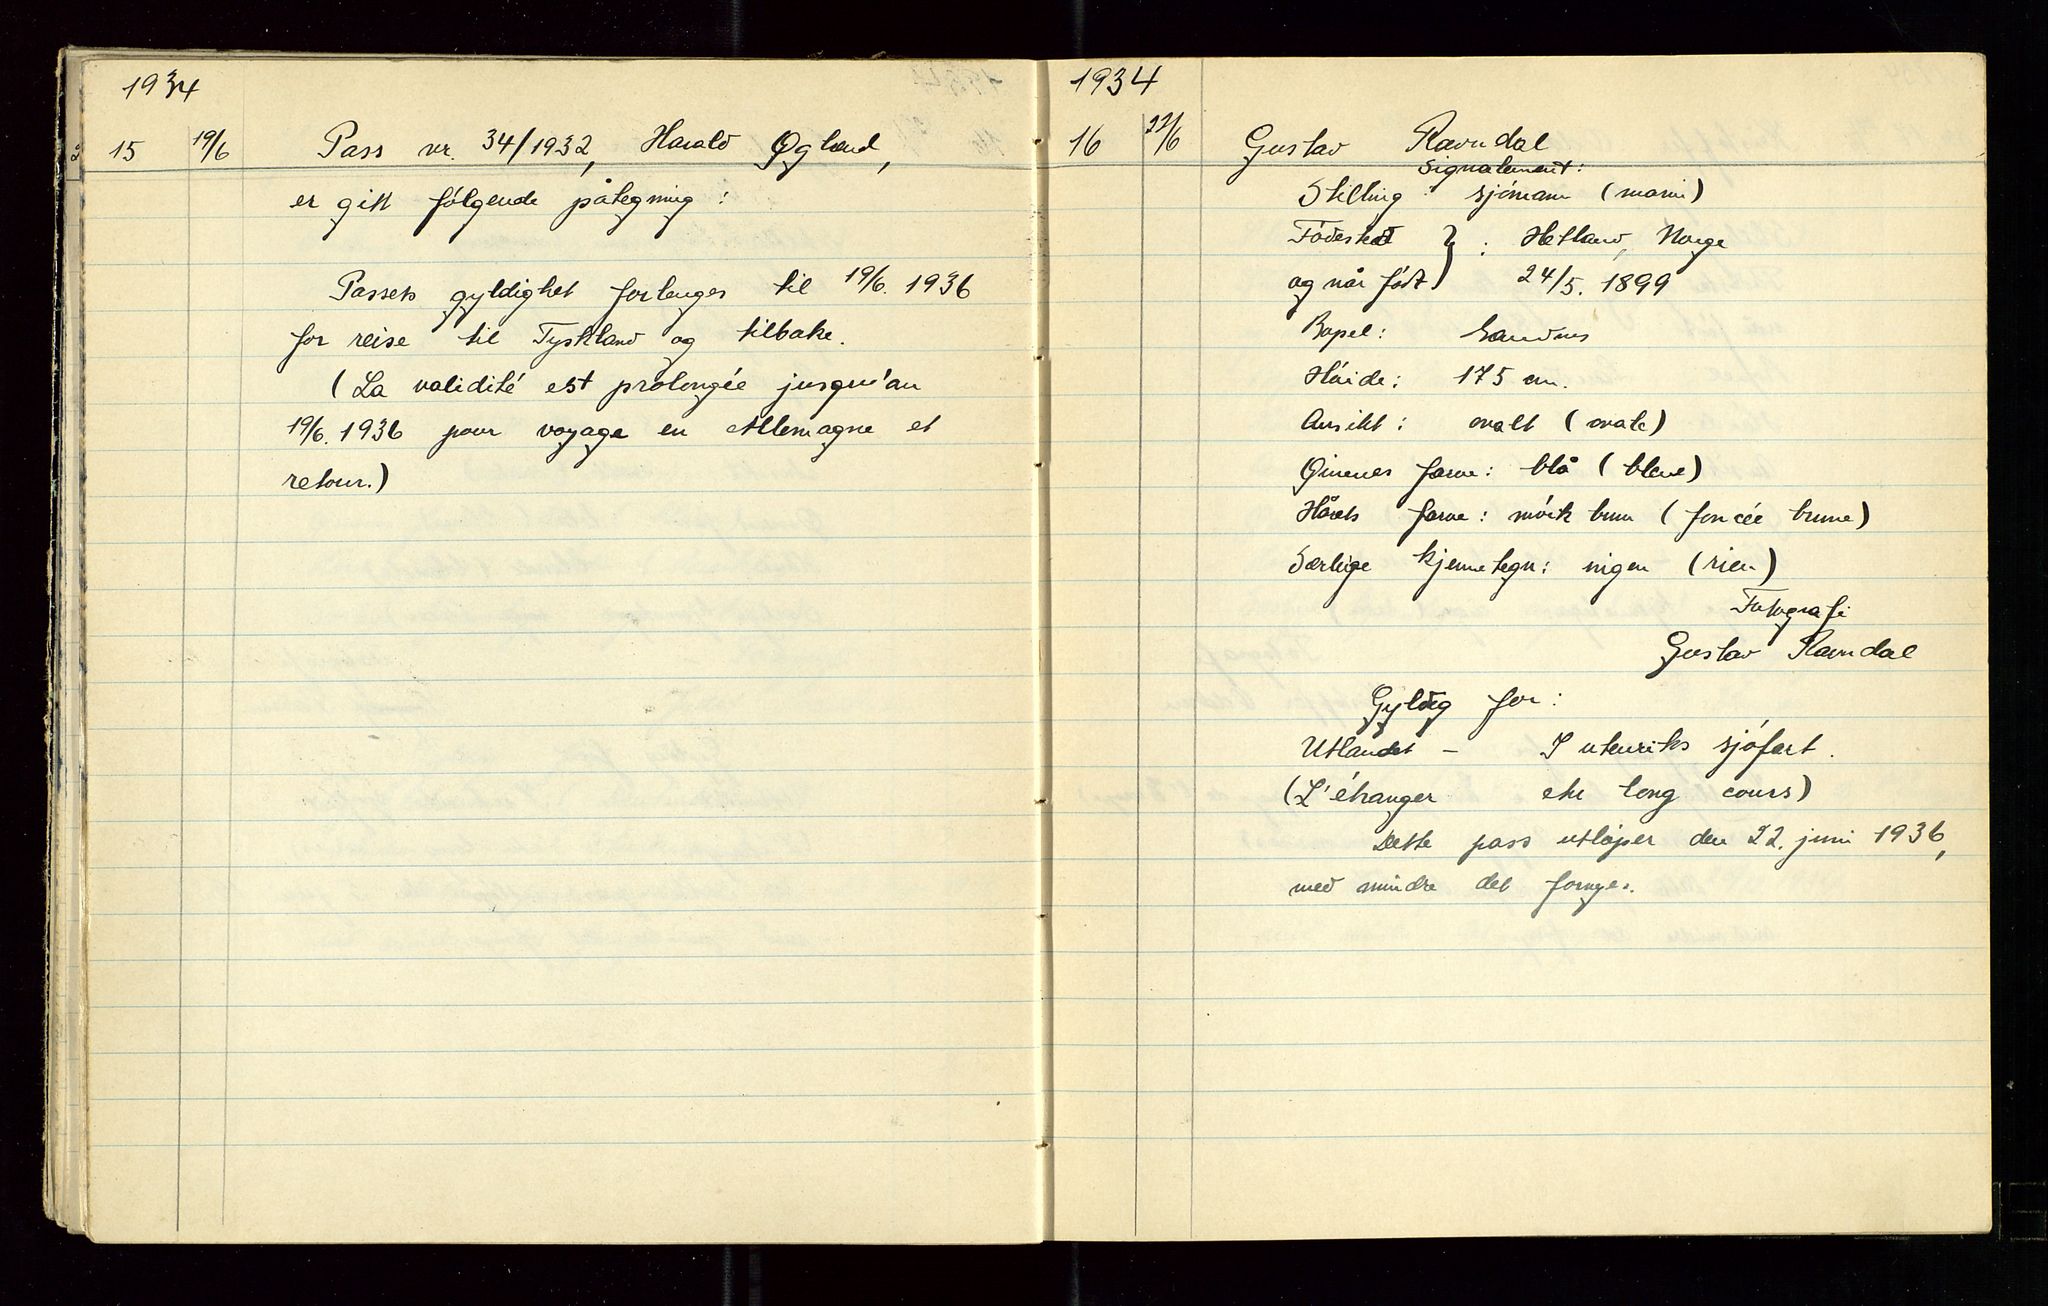 1934
15 19/6 Pass nr. 34/1932, Harald Øgland,
er gitt følgende påtegning:
Passets gyldighet forlenges til 19/6. 1936
for reise til Tyskland og tilbake.
(La validité est prolongée jusqu'au
19/6. 1936 pour voyage en Allemagne et
retour.)
1934
16 22/6 Gustav Ravndal
Signalement:
Stilling sjømann (marin)
Fødested } : Hetland, Norge
og når født } 24/5. 1899
Bopel: Sandnes
Høide: 175 cm.
Ansikt: ovalt (ovale)
Øinenes farve: blå (bleue)
Hårets farve: mørk brun (foncée brune)
Særlige kjennetegn: ingen (rien)
Fotografi
Gustav Ravndal
Gyldig for:
Utlandet – I utenriks sjøfart.
(L'étranger long cours)
Dette pass utløper den 22. juni 1936,
med mindre det fornyes.